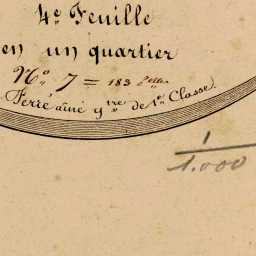 4e Feuille
en un quartier
No. 7 = 183 Celles
Ferré aîné gtre de 1re Classe.
1
1.000